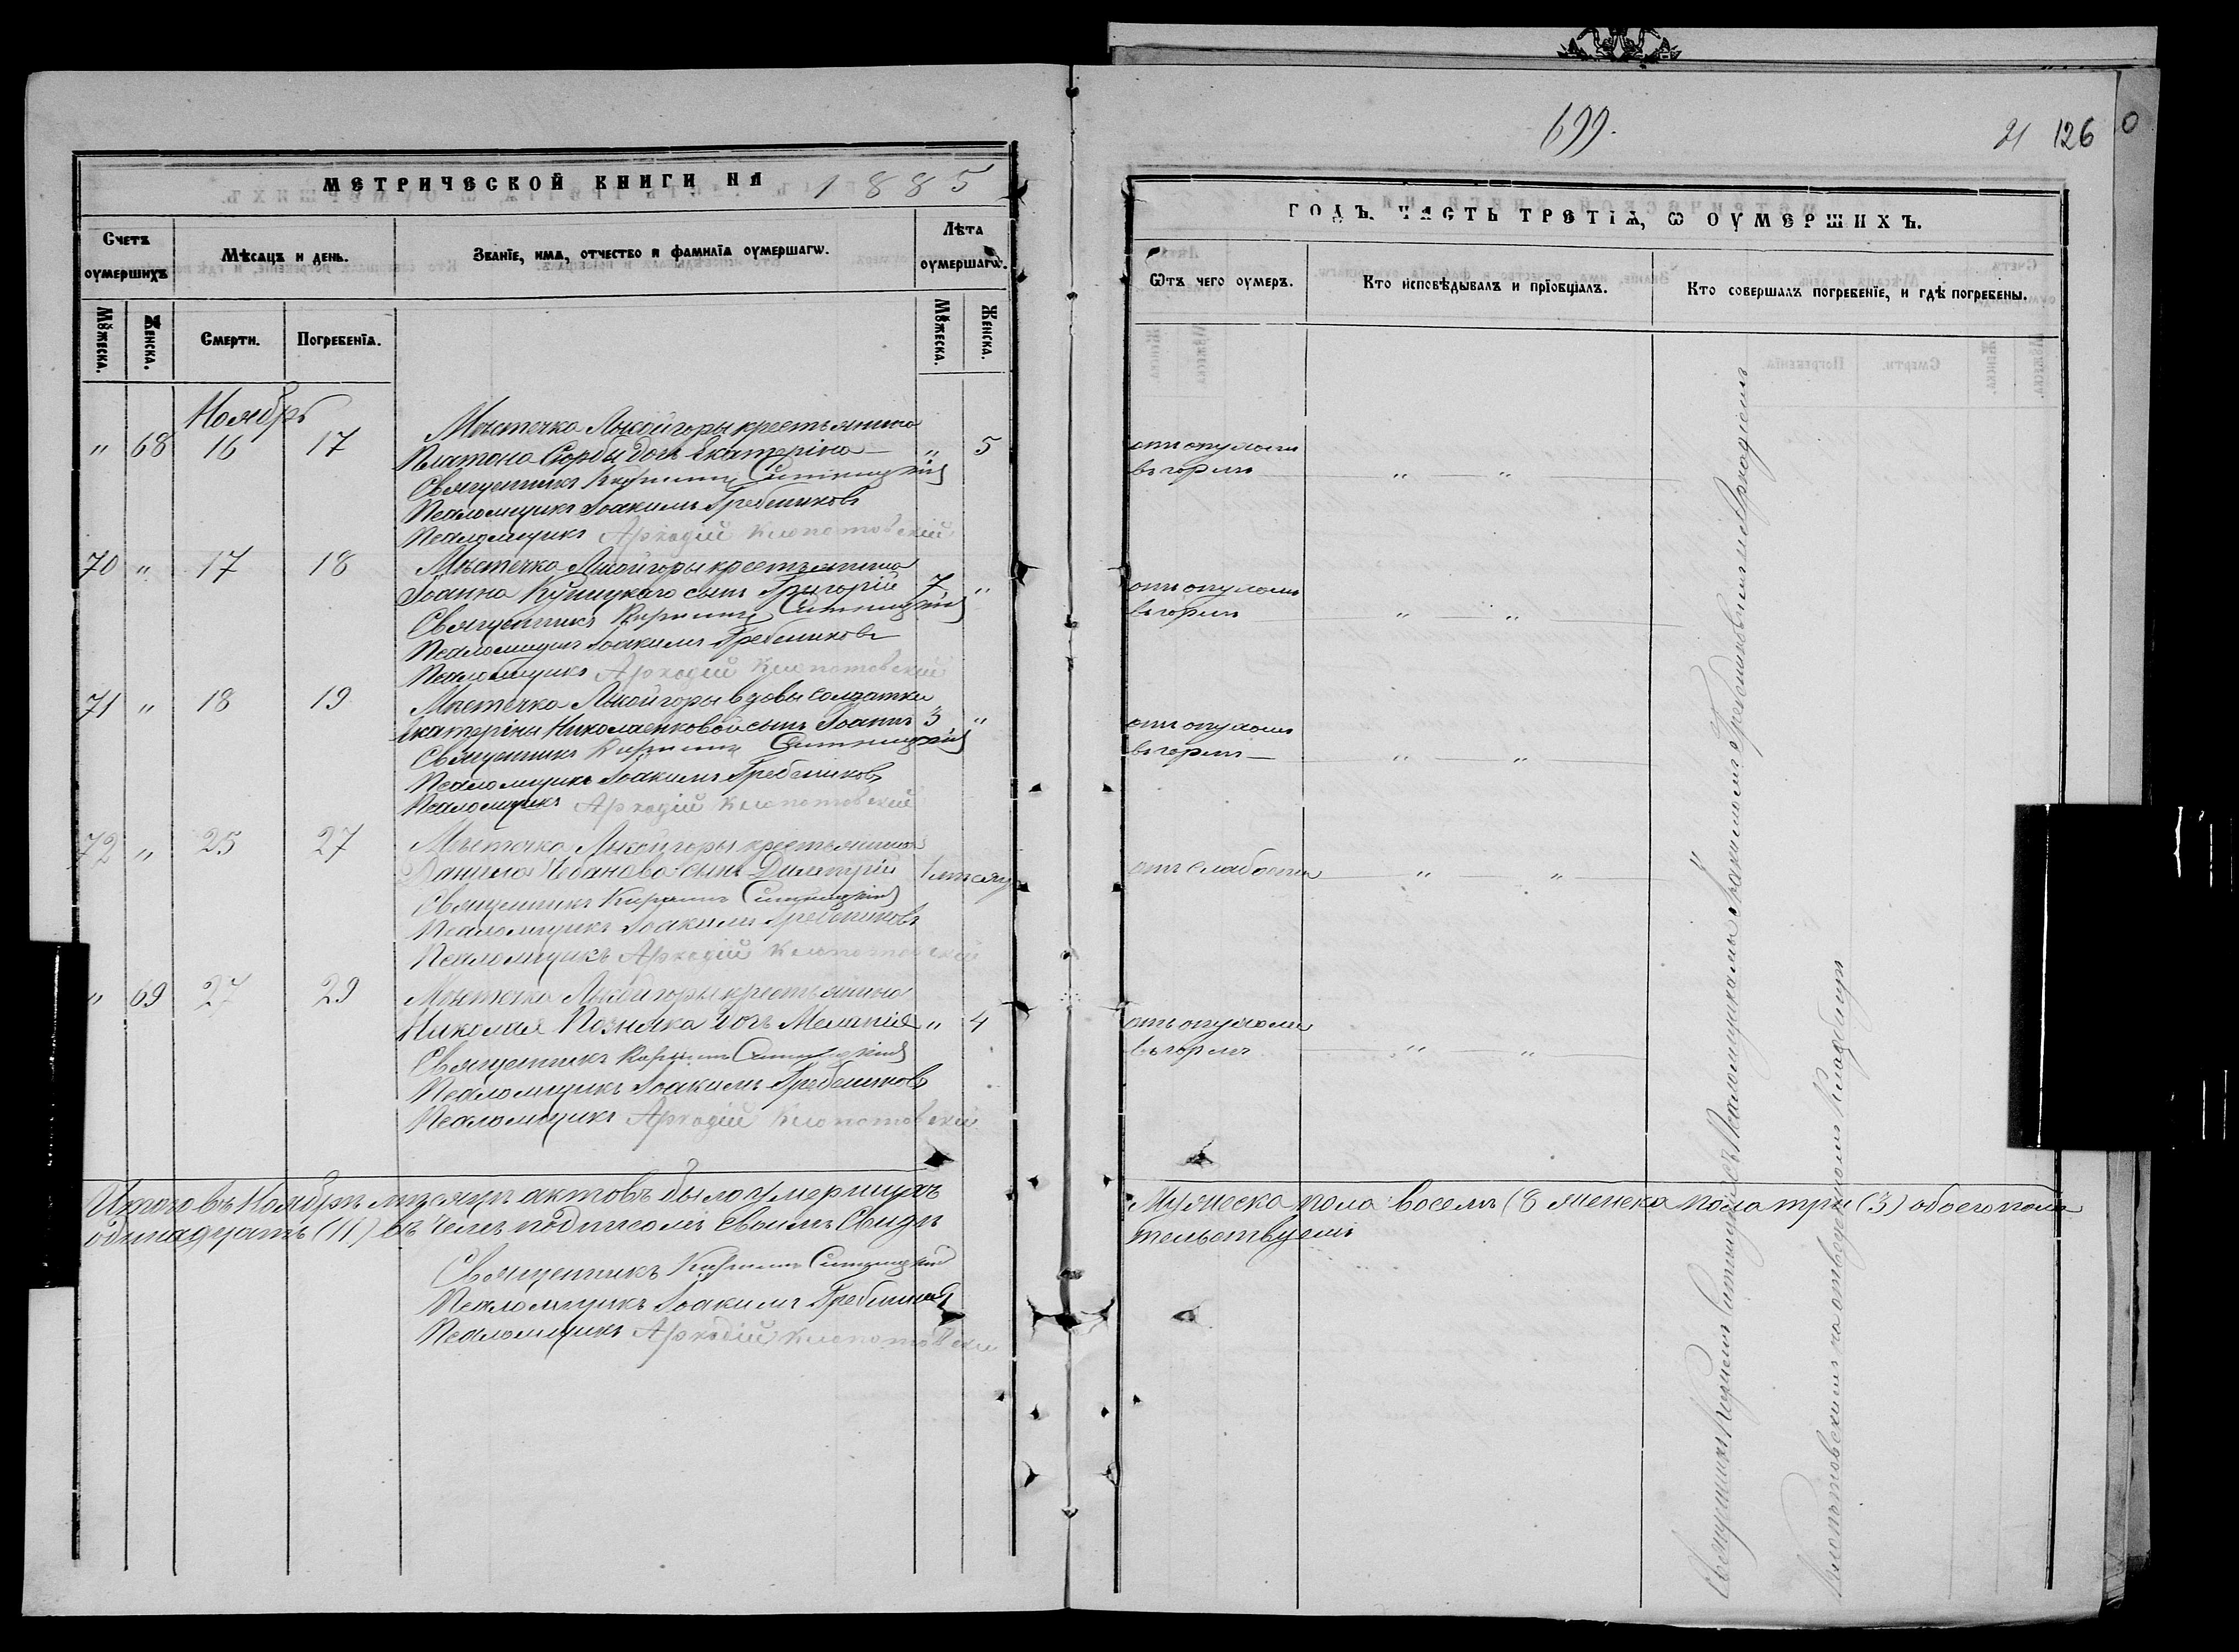 МЕТРИЧЕСКОЙ КНИГИ НА 1885
Счетъ оумершихъ
Мѣсяцъ и день.
Званїе, имя, отчество и фамилїа оумершагѡ.
Лѣта оумершагѡ.
Мꙋжеска.
Женска.
Смерти.
Погребенїа.
Мꙋжеска.
Женска.
Ноябрь
Мѣстечка Лысойгоры крестьянина
" 68 16 17 Платона Скорбы дочь Екатерина " 5
Священникъ Кирилъ Ситницкій
Псаломщикъ Іоакимъ Гребениковъ
Псаломщикъ Аркадій Клопотовскій
70 " 17 18 Мѣстечка Лысойгоры крестьянина
Іоанна Купицкаго сынъ Григорій 7 "
Священникъ Кирилъ Ситницкій
Псаломщикъ Іоакимъ Гребениковъ
Псаломщикъ Аркадій Клопотовскій
71 " 18 19 Мѣстечка Лысойгоры вдовы солдатки
Екатерины Николаенковой сынъ Іоаннъ 3 "
Священникъ Кирилъ Ситницкій
Псаломщикъ Іоакимъ Гребениковъ
Псаломщикъ Аркадій Клопотовскій
72 " 25 27 Мѣстечка Лысойгоры крестьянина
Данила Чебанова сынъ Димитрій 1 мѣсяц
Священникъ Кирилъ Ситницкій
Псаломщикъ Іоакимъ Гребениковъ
Псаломщикъ Аркадій Клопотовскій
" 69 27 29 Мѣстечка Лысойгоры крестьянина
Николая Позняка дочь Меланія " 4
Священникъ Кирилъ Ситницкій
Псаломщикъ Іоакимъ Гребениковъ
Псаломщикъ Аркадій Клопотовскій
Итого въ Ноябрѣ мѣсяцѣ актовъ было умершихъ
одинадцать (11) въ чемъ подписомъ своимъ свидѣ
Священникъ Кирилъ Ситницкій
Псаломщикъ Іоакимъ Гребениковъ
Псаломщикъ Аркадій Клопотовскій
699.
21 126
0
ГОДЪ. ЧАСТЬ ТРЕТІѦ, Ѡ ОУМЕРШИХЪ.
Ѿтъ чего оумеръ.
Кто исповѣдывалъ и прїобщалъ.
Кто совершалъ погребенїе, и гдѣ погребены.
отъ опухоли
въ горлѣ " "
отъ опухоли
въ горлѣ " "
отъ опухоли
въ горлѣ " "
отъ слабости " "
отъ опухоли
въ горлѣ " "
Священникъ Кирилъ Ситницкій съ Псаломщиками Іоакимомъ Гребениковымъ и Аркадіемъ
Клопотовскимъ на отведенномъ Кладбищѣ
Мужеска пола восемъ (8 женска пола три (3) обоего пола
тельствуемъ